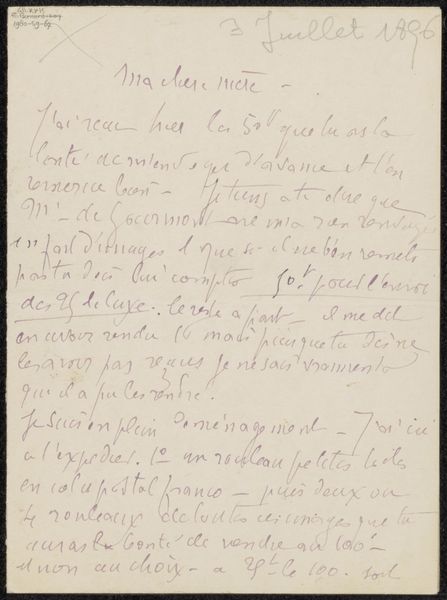 3 Juillet 1896
Ma chère mère –
J'ai reçu hier les 50f que tu as la
bonté de m'envoyer d'avance et t'en
remercie bien – Je tiens à te dire que
Mr – de Gourmont ne m'a rien renvoyé
en fait d'images et que s'il ne t'en remet
pas tu dois lui compter 50.f pour l'envoi
des 25 de luxe. le reste à part – il me dit
en avoir rendu 10 mais puisque tu dis ne
les avoir pas reçus je ne sais vraiment
qui il a pu les rendre.
Je suis en plein déménagement – J'ai ici
à t'expédier. 1o un rouleau petites toiles
en colis postal franco – puis deux ou
4 rouleaux de toutes ces images que tu
auras la bonté de vendre au 100 –
et non au choix – à 25f le 100. soit